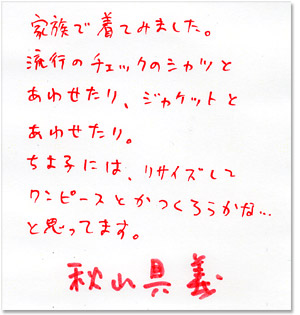 家族で着てみました。
流行のチェックのシャツと
あわせたり、ジャケットと
あわせたり。
ちよ子には、リサイズして
ワンピースとかつくろうかな…
と思ってます。
秋山具義